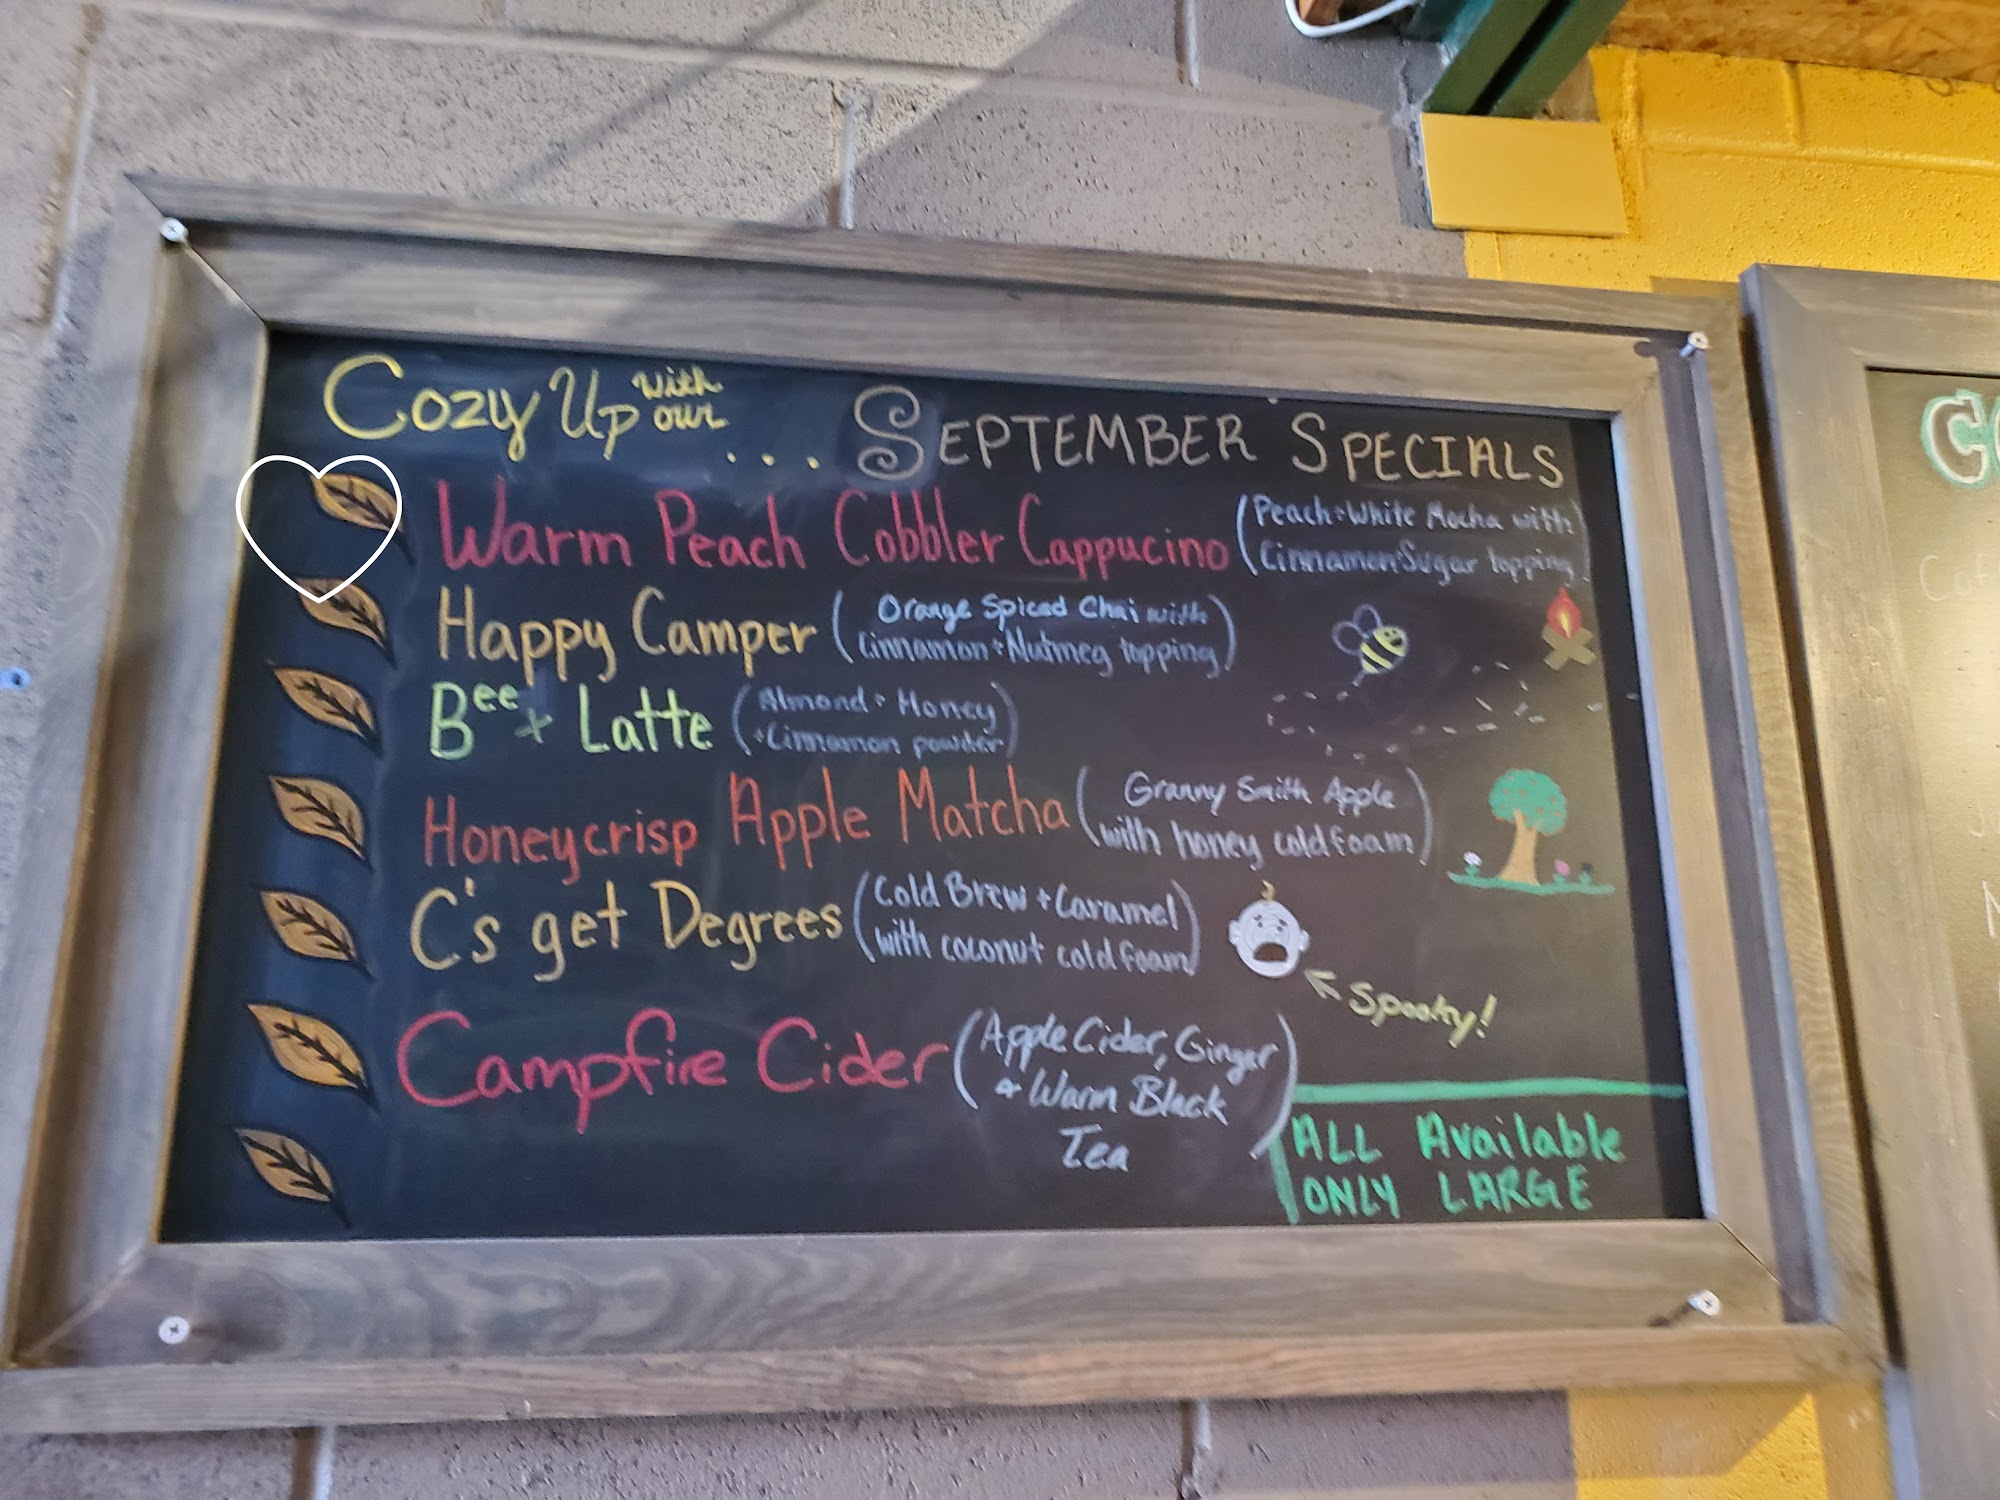 Cozy Up with our ... September Specials
Warm Peach Cobbler Cappucino (Peach + White Mocha with
Cinnamon Sugar topping)
Happy Camper (Orange Spiced Chai with
Cinnamon + Nutmeg topping)
Bee + Latte (Almond + Honey
+ Cinnamon powder)
Honeycrisp Apple Matcha (Granny Smith Apple
with honey cold foam)
C's get Degrees (Cold Brew + Caramel
with coconut cold foam)
Spooky!
Campfire Cider (Apple Cider, Ginger
+ Warm Black
Tea)
ALL Available
ONLY LARGE